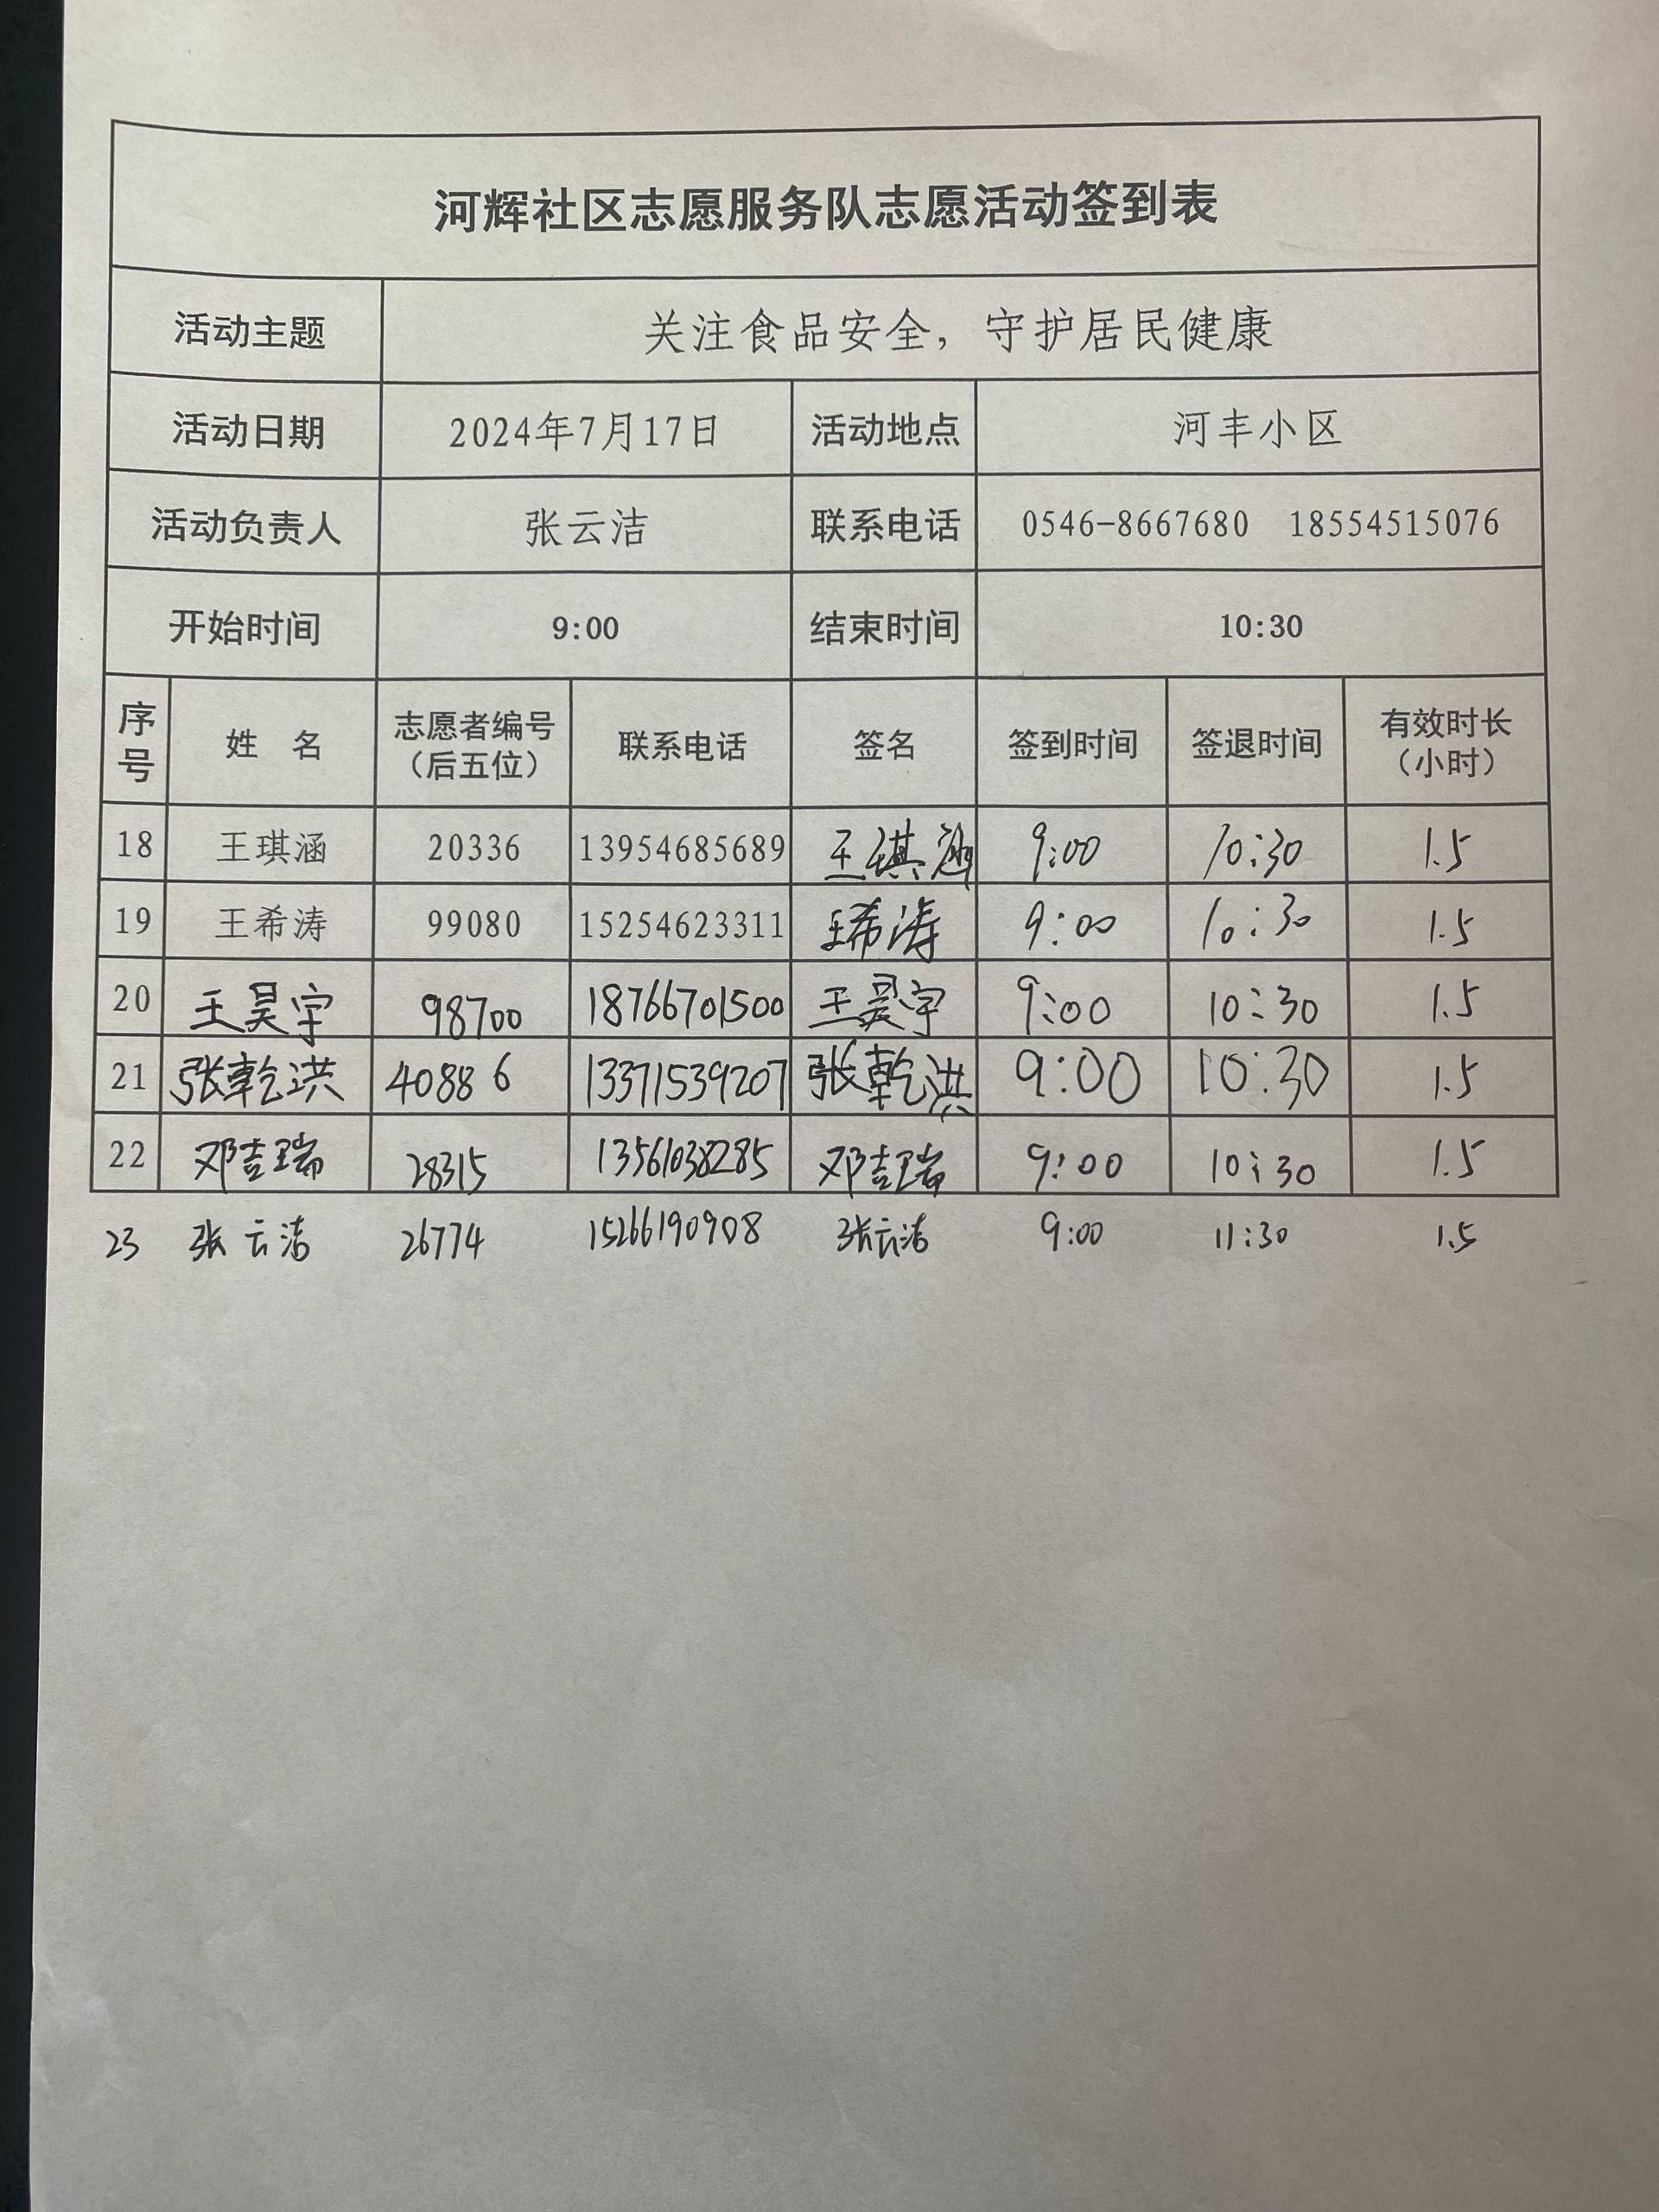 河辉社区志愿服务队志愿活动签到表
活动主题 关注食品安全，守护居民健康
活动日期 2024年7月17日 活动地点 河丰小区
活动负责人 张云洁 联系电话 0546-8667680 18554515076
开始时间 9:00 结束时间 10:30
序号 姓 名 志愿者编号（后五位） 联系电话 签名 签到时间 签退时间 有效时长（小时）
18 王琪涵 20336 13954685689 王琪涵 9:00 10:30 1.5
19 王希涛 99080 15254623311 王希涛 9:00 10:30 1.5
20 王昊宇 98700 18766701500 王昊宇 9:00 10:30 1.5
21 张乾洪 40886 13371539207 张乾洪 9:00 10:30 1.5
22 邓吉瑞 28315 13561038285 邓吉瑞 9:00 10:30 1.5
23 张云洁 26774 15266190908 张云洁 9:00 11:30 1.5